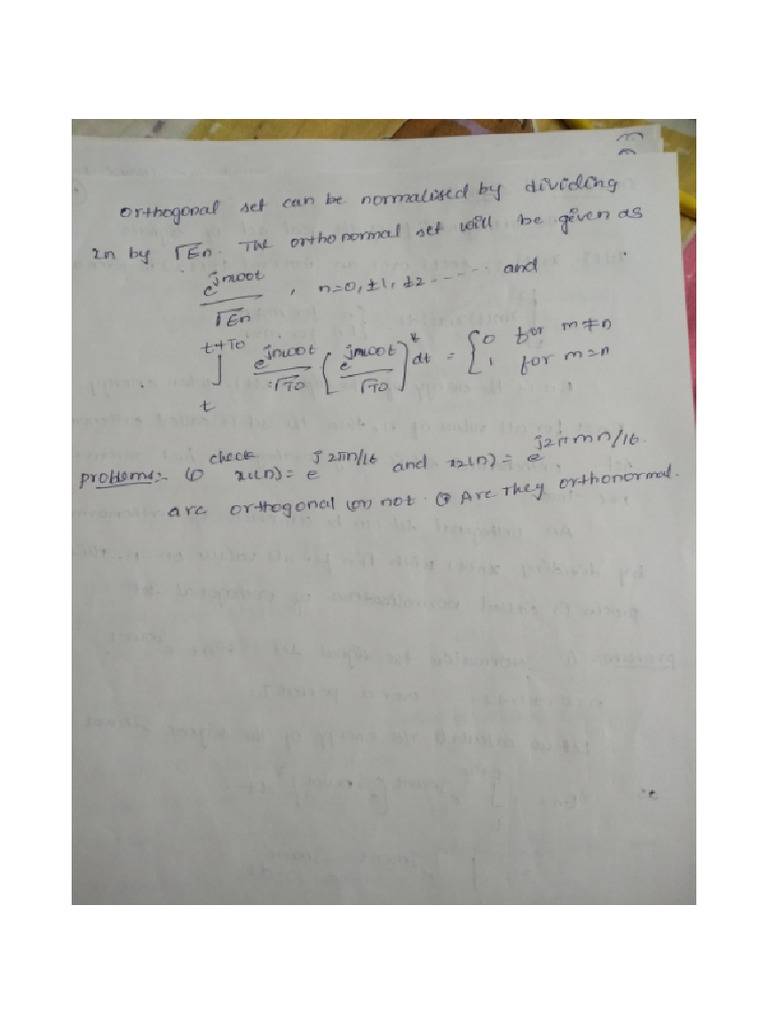 orthogonal set can be normalised by dividing
xn by √En. The orthonormal set will be given as
e^jnω0t / √En , n=0, ±1, ±2 ...... and
∫_t^t+T0 e^jnω0t / √T0 (e^jmω0t / √T0)^* dt = { 0 for m≠n
1 for m=n
problems:- ① check x1(n) = e^j2πn/16 and x2(n) = e^j2πmn/16.
are orthogonal (or) not. ② Are They orthonormal.